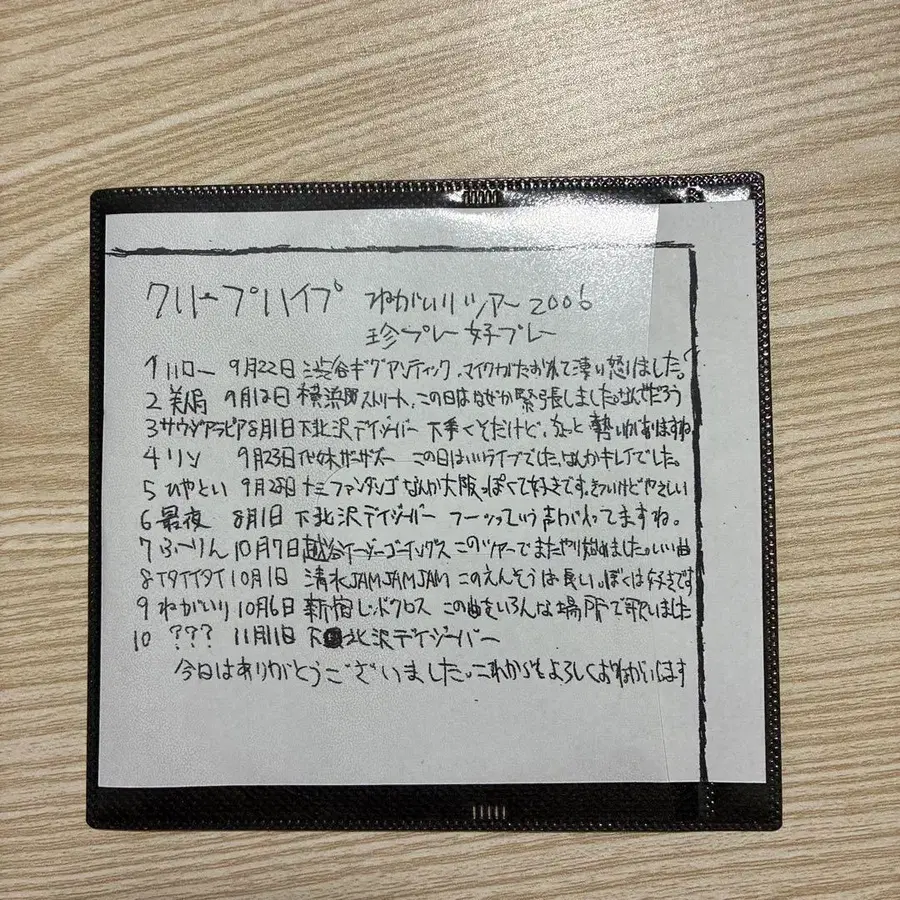 クリープハイプ ねがいりツアー2006
珍プレー好プレー
1 ハロー 9月22日 渋谷ギグアンティック、マイクがたおれて凄い怒りました。
2 美人局 9月12日 横浜 ストリート、この日はなぜか緊張しましたなんでだろう
3 サウジアラビア 8月1日 下北沢デイジーバー 下手くそだけど、ちょっと勢いがありますね
4 リンリン 9月23日 代々木ザーザズー この日はいいライブでした。なんかキレイでした。
5 ひやとい 9月28日 十三ファンダンゴ なんか大阪っぽくて好きです。きついけどやさしい
6 最夜 8月1日 下北沢デイジーバー フーッっていう声が入ってますね。
7 ふーりん 10月7日 越谷イージーゴーイングス このツアーでまたやり始めました。いい曲
8 イタイイタイ 10月1日 清水JAMJAMJAM このえんそうは長い。ぼくは好きです
9 ねがいり 10月6日 新宿レッドクロス この曲をいろんな場所で歌いました
10 ??? 11月11日 下北沢デイジーバー
今日はありがとうございました。これからもよろしくおねがいします